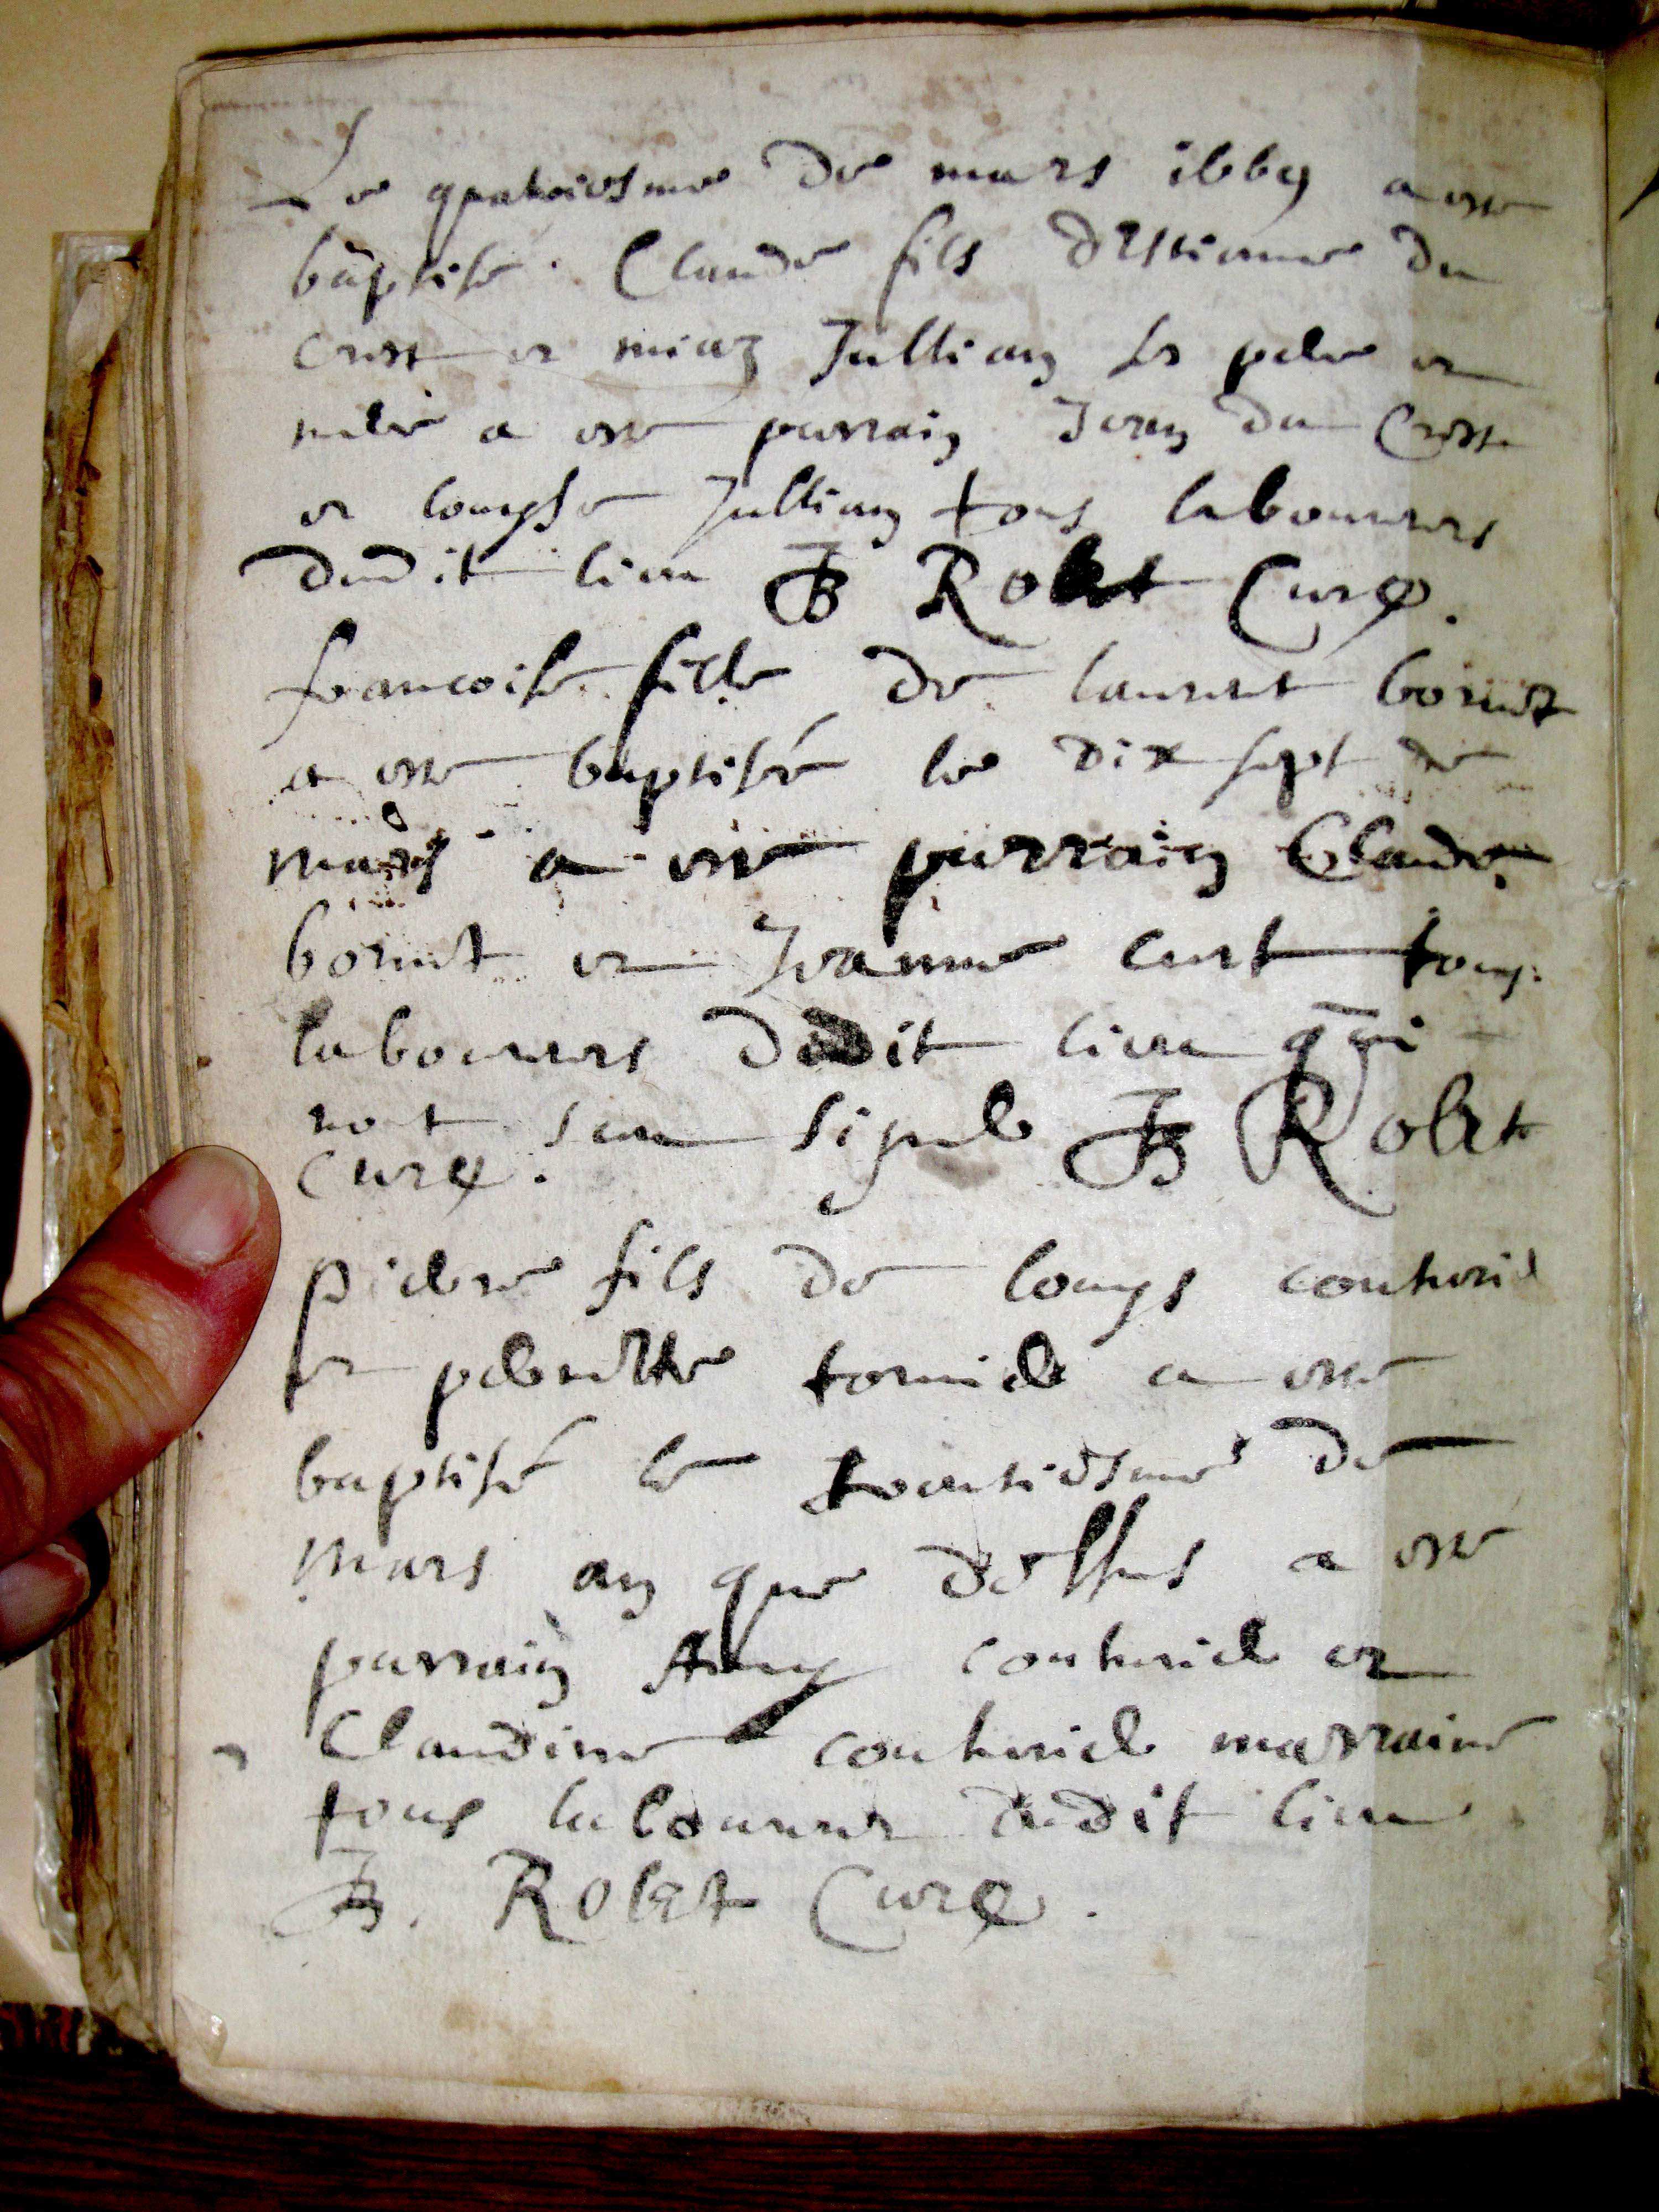 Le quatriesme de mars 1669 a esté
baptisé. Claude fils d'Estienne du
Crost et miaz Jullian ses pere et
mere a esté parrain Jean du Crost
et louyse Jullian tous laboureurs
dudit lieu JB Rolet Curé.
francoise fille de laurent bornet
a esté baptisée le dix sept de
mars a esté parrain Claude
bornet et Jeanne curt tous
laboureurs dudit lieu qui
not sceu signer JB Rolet
curé.
pierre fils de louys couturie
et pernette a esté
baptisé le trentiesme de
mars an que dessus a esté
parrain Amy couturier et
Claudine couturier marraine
tous laboureurs dudit lieu
JB. Rolet Curé.